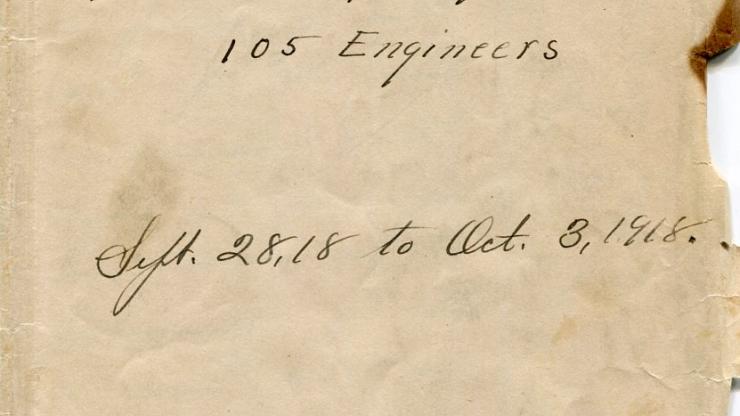 105 Engineers
Sept. 28,18 to Oct. 3, 1918.